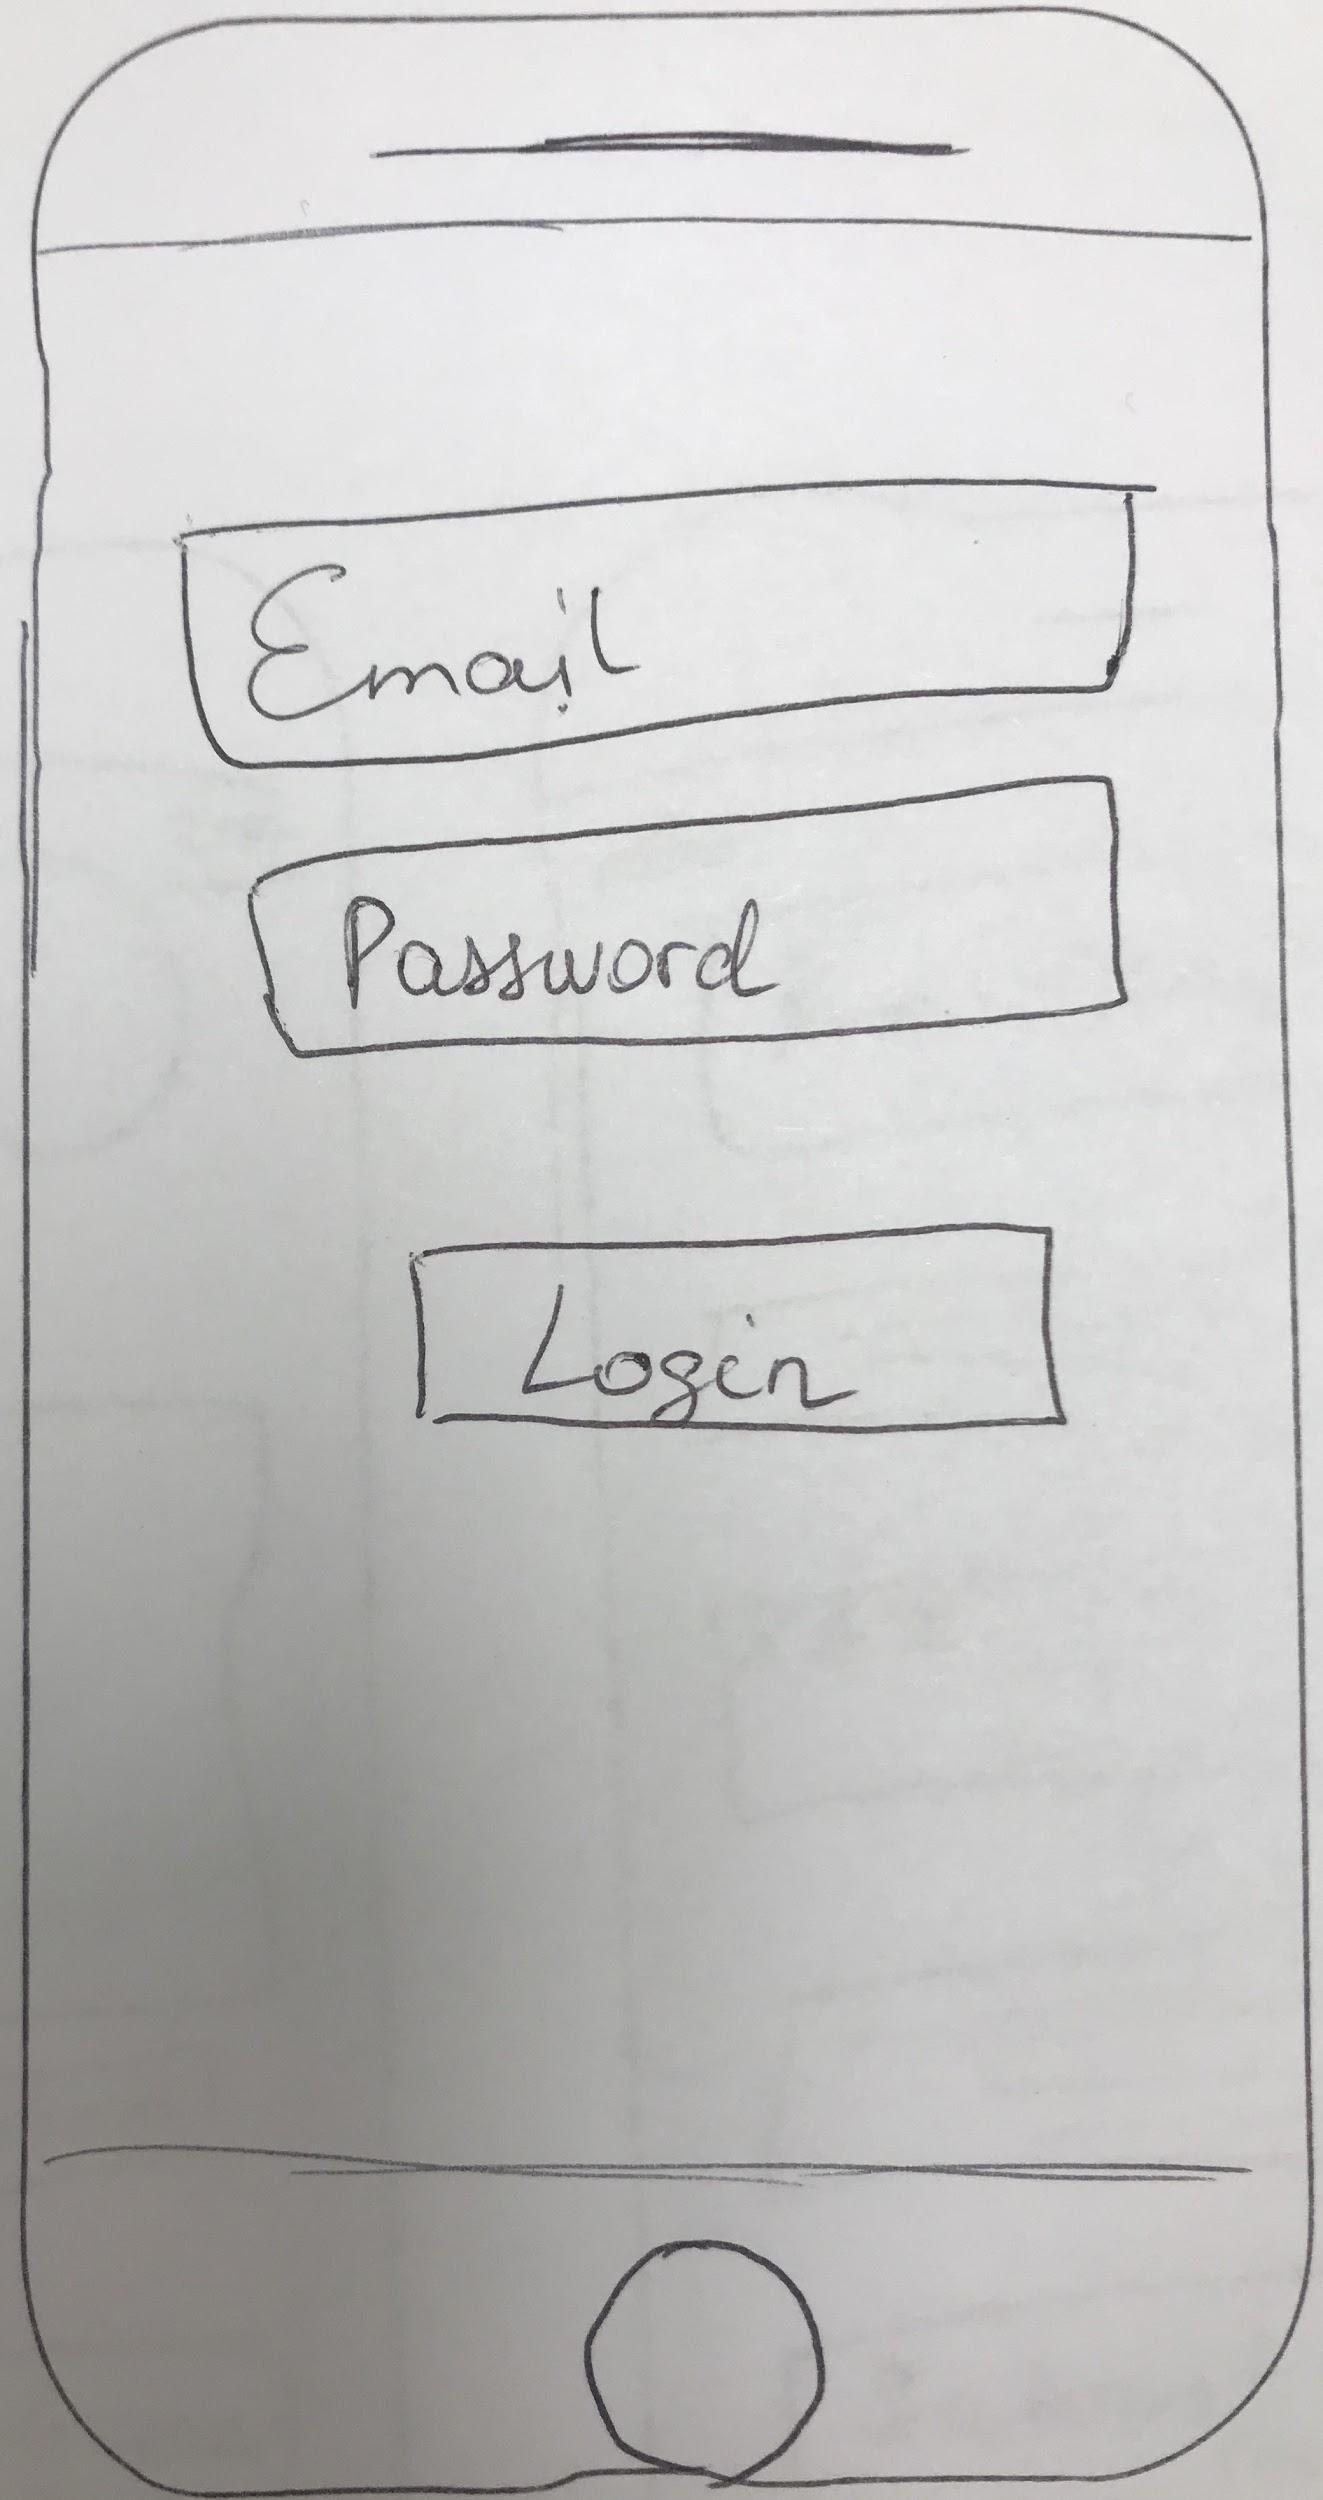 Email
Password
Login